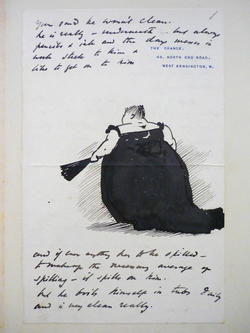 You said he wasn't clean.
he is really - underneath - but always
pencils & ink and the
work stick to him &
like to get on to him
THE GRANGE,
49, NORTH END ROAD,
WEST KENSINGTON, W.
and if ever anything has to be spilled -
to make up the necessary average of
spilling - it spills on him.
but he boils himself in tubs daily
and is very clean really.